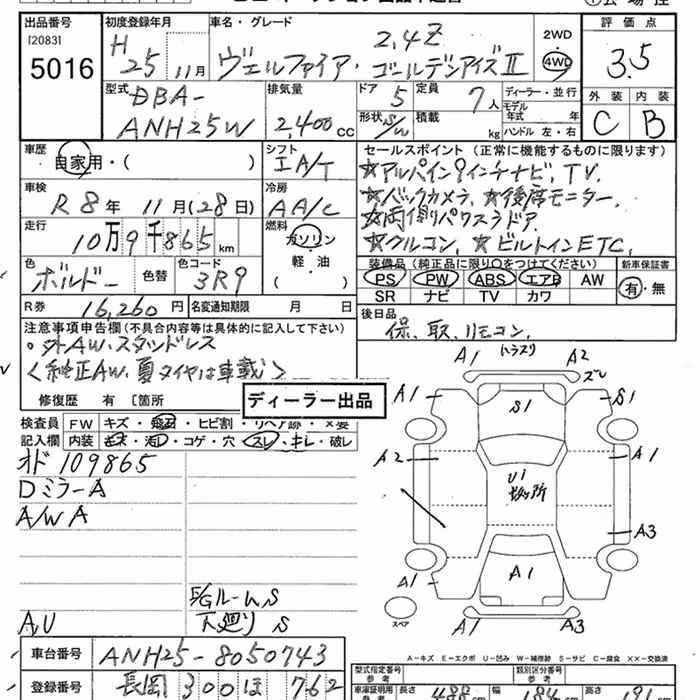 出品番号 初度登録年月 車名・グレード 2WD 評価点
[2083] H 2.4Z 4WD 3.5
5016 25 11月 ヴェルファイア・ゴールデンアイズⅡ
型式 排気量 ドア 5 定員 7人 ディーラー・並行 外装 内装
DBA- モデル年式 年 C B
ANH25W 2,400cc 形状 S/W 積載 kg ハンドル 左・右
車歴 シフト セールスポイント (正常に機能するものに限ります)
自家用・( ) IA/T ☆アルパイン9インチナビ, TV.
車検 冷房 ☆バックカメラ, ☆後席モニター
R8年 11月(28日) AA/C ☆両側パワスラドア.
走行 燃料 ☆クルコン, ☆ビルトインETC,
10万9千865km ガソリン
軽・油
色 色替 色コード 装備品 (純正品に限り○をつけてください) 新車保証書
ボルドー 3R9 ( ) PS PW ABS エアB AW 有・無
SR ナビ TV カワ
R券 16,260円 名変通知期限 月 日 後日品
注意事項申告欄 (不具合内容等は具体的に記入して下さい) 保、取、リモコン.
。外AW.スタッドレス
<純正AW.夏タイヤは車載>
修復歴 有 〔箇所
ディーラー出品
検査員 FW キズ・飛石・ヒビ割・リペア跡・×要
記入欄 内装 キズ・汚レ・コゲ・穴・スレ・キレ・破レ
オド109865
DミラーA
A/W A
E/GルームS
A,U 下廻りS
A1 ハラスリ A2
ズレ
A1 S1 S1
A2 Ui A1
A3
A1 A1
スペア
A1 A3
A-キズ E-エクボ U-凹み W-補修跡 S-サビ C-腐食 XX-交換済
車台番号 ANH25-8050743 型式指定番号 類別区分番号
参考 参考
登録番号 長岡 300 ほ 762 車庫証明用 参考 長さ 488 幅 184 高さ 191